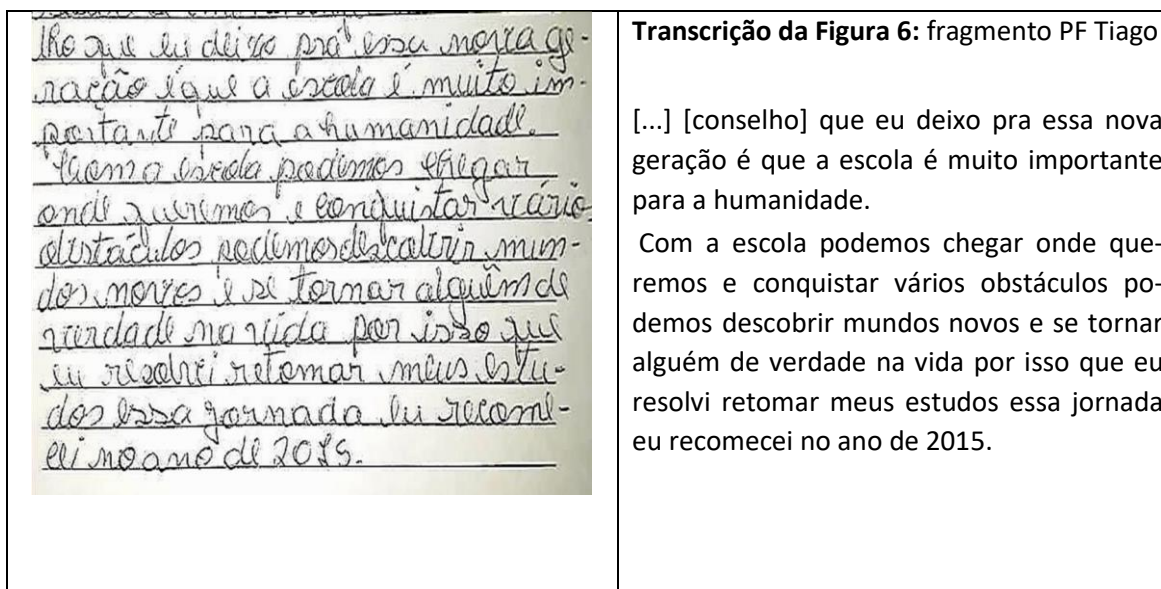 lho que eu deixo pra essa nova ge-
ração é que a escola é muito im-
portante para a humanidade.
Com a escola podemos chegar
onde queremos e conquistar vário
obistáculos podemos descobrir mun-
dos novos e se tornar alguém de
verdade na vida por isso que
eu resolvi retomar meus estu-
dos essa jornada eu recome-
cei no ano de 2015.
Transcrição da Figura 6: fragmento PF Tiago
[...] [conselho] que eu deixo pra essa nova
geração é que a escola é muito importante
para a humanidade.
Com a escola podemos chegar onde que-
remos e conquistar vários obstáculos po-
demos descobrir mundos novos e se tornar
alguém de verdade na vida por isso que eu
resolvi retomar meus estudos essa jornada
eu recomecei no ano de 2015.